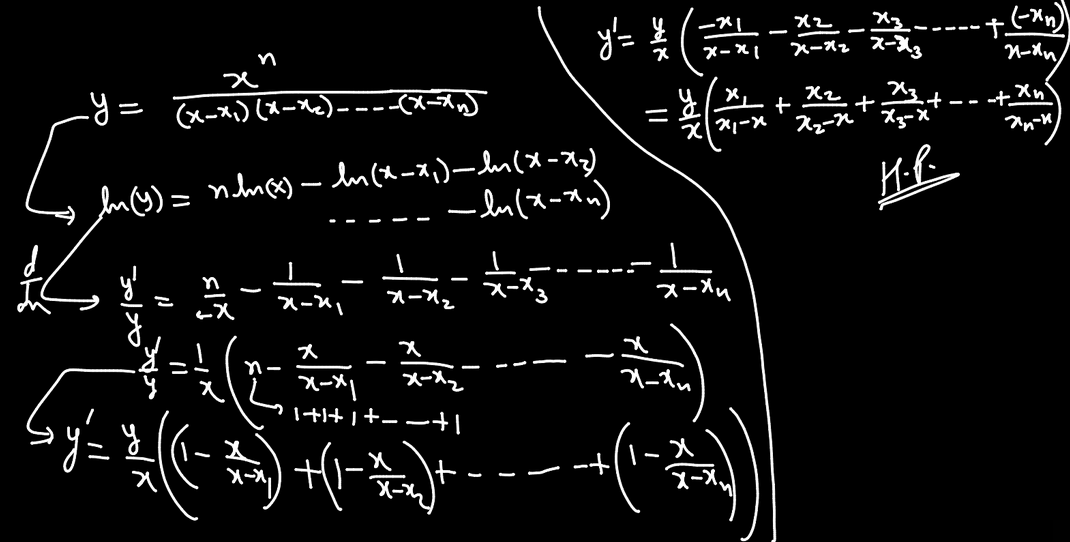 y = x^n / ((x-x₁)(x-x₂)-----(x-xₙ))
ln(y) = n ln(x) - ln(x-x₁) - ln(x-x₂)
----- - ln(x-xₙ)
d/dx
y'/y = n/x - 1/(x-x₁) - 1/(x-x₂) - 1/(x-x₃) ------ - 1/(x-xₙ)
y'/y = 1/x (n - x/(x-x₁) - x/(x-x₂) - ---- - x/(x-xₙ))
1+1+1+----+1
y' = y/x ((1 - x/(x-x₁)) + (1 - x/(x-x₂)) + ----- + (1 - x/(x-xₙ)))
y' = y/x (-x₁/(x-x₁) - x₂/(x-x₂) - x₃/(x-x₃) ----- + (-xₙ)/(x-xₙ))
= y/x (x₁/(x₁-x) + x₂/(x₂-x) + x₃/(x₃-x) + --- + xₙ/(xₙ-x))
H.P.